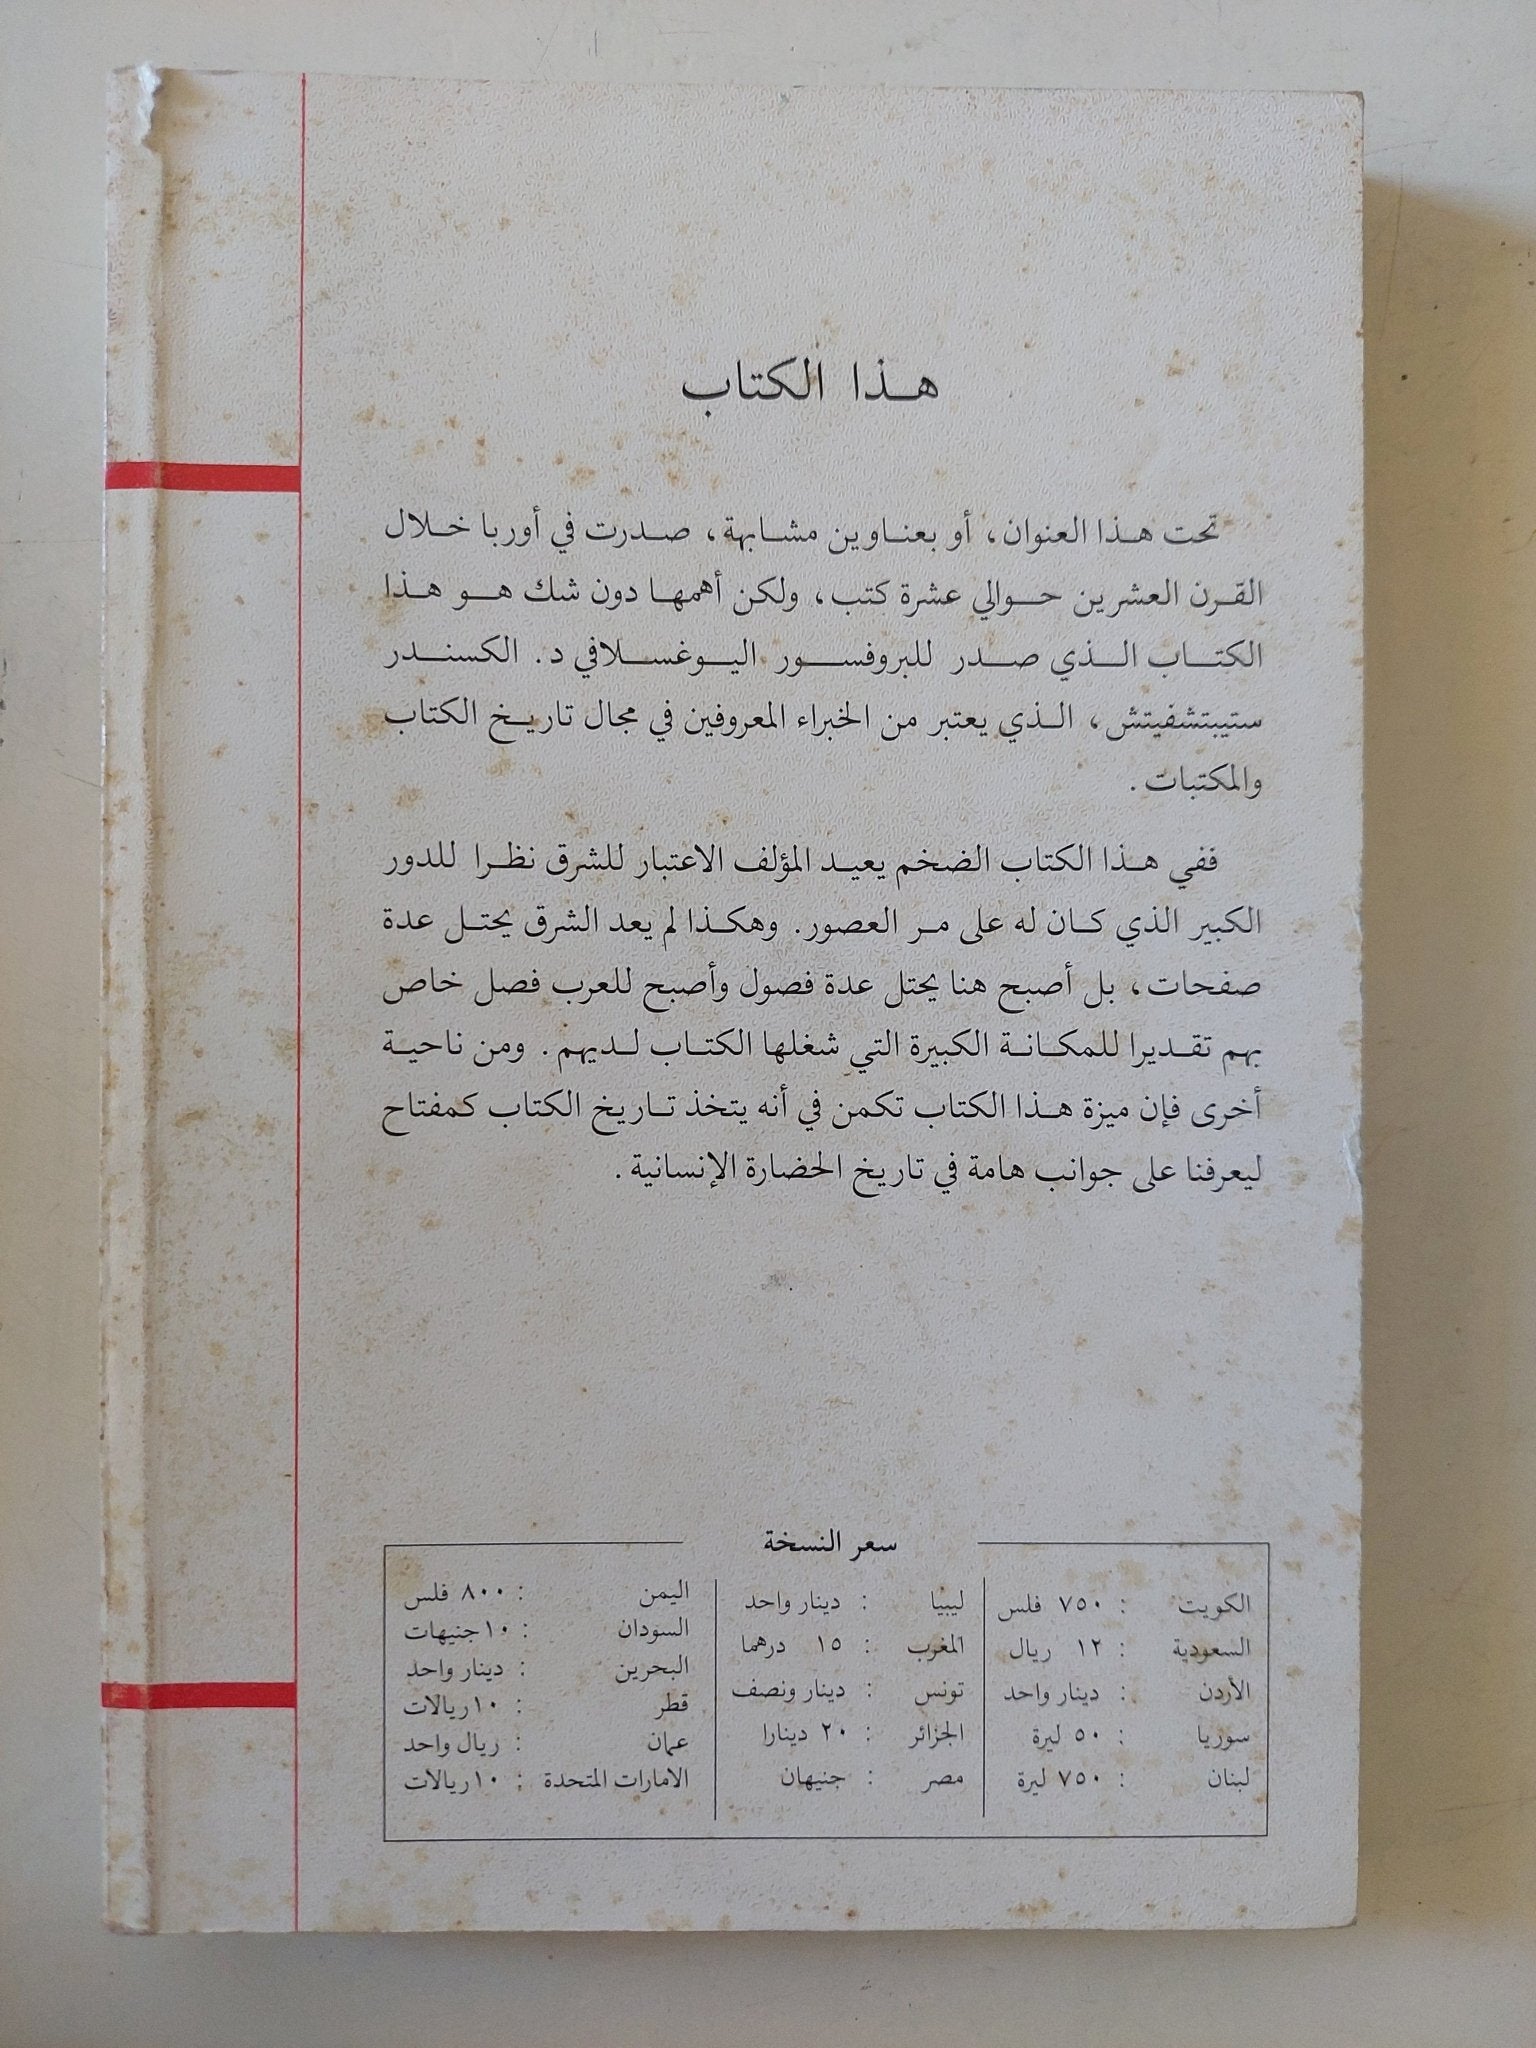 هذا الكتاب
تحت هذا العنوان، أو بعناوين مشابهة، صدرت في أوربا خلال
القرن العشرين حوالي عشرة كتب، ولكن أهمها دون شك هو هذا
الكتاب الذي صدر للبروفسور اليوغسلافي د. الكسندر
ستيبتشفيتش، الذي يعتبر من الخبراء المعروفين في مجال تاريخ الكتاب
والمكتبات.
ففي هذا الكتاب الضخم يعيد المؤلف الاعتبار للشرق نظرا للدور
الكبير الذي كان له على مر العصور. وهكذا لم يعد الشرق يحتل عدة
صفحات، بل أصبح هنا يحتل عدة فصول وأصبح للعرب فصل خاص
بهم تقديرا للمكانة الكبيرة التي شغلها الكتاب لديهم. ومن ناحية
أخرى فإن ميزة هذا الكتاب تكمن في أنه يتخذ تاريخ الكتاب كمفتاح
ليعرفنا على جوانب هامة في تاريخ الحضارة الإنسانية.
سعر النسخة
الكويت : ٧٥٠ فلس
السعودية : ١٢ ريال
الأردن : دينار واحد
سوريا : ٥٠ ليرة
لبنان : ٧٥٠ ليرة
ليبيا : دينار واحد
المغرب : ١٥ درهما
تونس : دينار ونصف
الجزائر : ٢٠ دينارا
مصر : جنيهان
اليمن : ٨٠٠ فلس
السودان : ١٠ جنيهات
البحرين : دينار واحد
قطر : ١٠ ريالات
عمان : ريال واحد
الامارات المتحدة : ١٠ ريالات